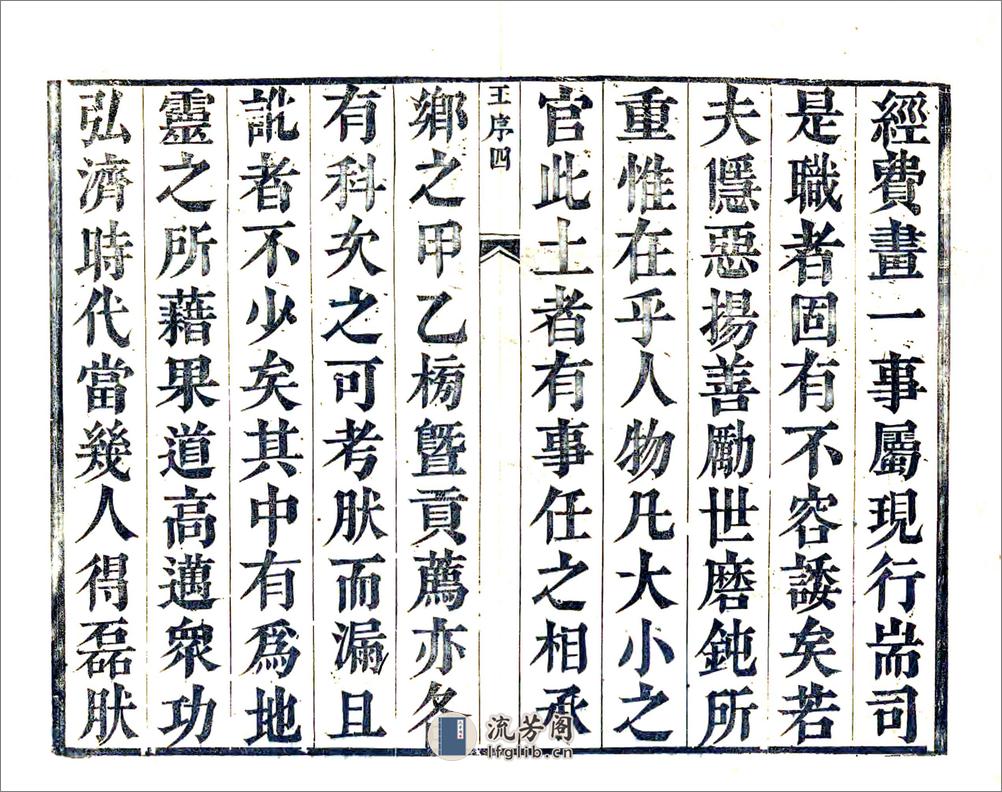 經費畫一事屬現行耑司
是職者固有不容諉矣若
夫隱惡揚善勵世磨鈍所
重惟在乎人物凡大小之
官此土者有事任之相承
王序四
鄉之甲乙榜暨貢薦亦各
有科次之可考肰而漏且
訛者不少矣其中有爲地
靈之所藉果道高邁眾功
弘濟時代當幾人得磊肰
流芳阁
lfglib.cn